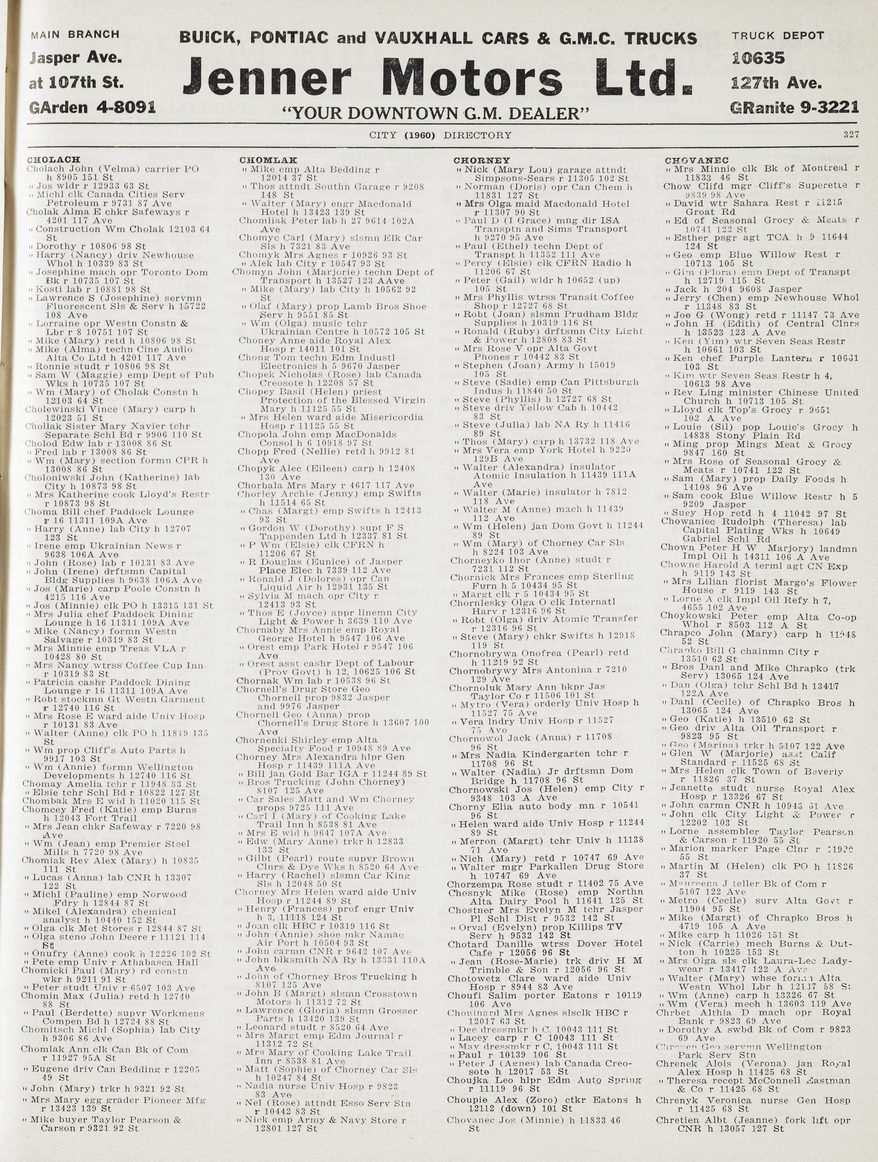 MAIN BRANCH
Jasper Ave.
at 107th St.
GArden 4-8091
BUICK, PONTIAC and VAUXHALL CARS & G.M.C. TRUCKS
Jenner Motors Ltd.
"YOUR DOWNTOWN G.M. DEALER"
TRUCK DEPOT
10635
127th Ave.
GRanite 9-3221
CITY (1960) DIRECTORY
327
CHOLACH
Cholach John (Velma) carrier PO
h 8905 151 St
" Jos wldr r 12933 63 St
" Michl clk Canada Cities Serv
Petroleum r 9731 87 Ave
Cholak Alma E chkr Safeways r
4201 117 Ave
" Construction Wm Cholak 12103 64
St
" Dorothy r 10806 98 St
" Harry (Nancy) driv Newhouse
Whol h 10339 83 St
" Josephine mach opr Toronto Dom
Bk r 10735 107 St
" Kosti lab r 10881 98 St
" Lawrence S (Josephine) servmn
Fluorescent Sls & Serv h 15722
108 Ave
" Lorraine opr Westn Constn &
Lbr r 8 10751 107 St
" Mike (Mary) retd h 10806 98 St
" Mike (Alma) techn Cine Audio
Alta Co Ltd h 4201 117 Ave
" Ronnie studt r 10806 98 St
" Sam W (Maggie) emp Dept of Pub
Wks h 10735 107 St
" Wm (Mary) of Cholak Constn h
12103 64 St
Cholewinski Vince (Mary) carp h
12023 51 St
Chollak Sister Mary Xavier tchr
Separate Schl Bd r 9906 110 St
Cholod Edw lab r 13008 86 St
" Fred lab r 13008 86 St
" Wm (Mary) section formn CPR h
13008 86 St
Choloniwski John (Katherine) lab
City h 10873 98 St
" Mrs Katherine cook Lloyd's Restr
r 10873 98 St
Choma Bill chef Paddock Lounge
r 16 11311 109A Ave
" Harry (Anne) lab City h 12707
123 St
" Irene emp Ukrainian News r
9638 106A Ave
" John (Rose) lab r 10131 83 Ave
" John (Irene) drftsmn Capital
Bldg Supplies h 9638 106A Ave
" Jos (Marie) carp Poole Constn h
4215 116 Ave
" Jos (Minnie) clk PO h 13315 131 St
" Mrs Julia chef Paddock Dining
Lounge h 16 11311 109A Ave
" Mike (Nancy) formn Westn
Salvage r 10319 83 St
" Mrs Minnie emp Treas VLA r
10428 80 St
" Mrs Nancy wtrss Coffee Cup Inn
r 10319 83 St
" Patricia cashr Paddock Dining
Lounge r 16 11311 109A Ave
" Robt stockmn Gt Westn Garment
r 12740 116 St
" Mrs Rose E ward aide Univ Hosp
r 10131 83 Ave
" Walter (Anne) clk PO h 11819 135
St
" Wm prop Cliff's Auto Parts h
9917 103 St
" Wm (Annie) formn Wellington
Developments h 12740 116 St
Chomay Amelia tchr r 11948 83 St
" Elsie tchr Schl Bd r 10822 127 St
Chombak Mrs E wid h 11020 115 St
Chomcey Fred (Katie) emp Burns
h 12043 Fort Trail
" Mrs Jean chkr Safeway r 7220 98
Ave
" Wm (Jean) emp Premier Steel
Mills h 7720 98 Ave
Chomiak Rev Alex (Mary) h 10835
111 St
" Lucas (Anna) lab CNR h 13307
122 St
" Michl (Pauline) emp Norwood
Fdry h 12844 87 St
" Mikel (Alexandra) chemical
analyst h 10440 152 St
" Olga clk Met Stores r 12844 87 St
" Olga steno John Deere r 11121 114
St
" Onufry (Anne) cook h 12226 102 St
" Pete emp Univ r Athabasca Hall
Chomicki Paul (Mary) rd constn
wkr h 9211 91 St
" Peter studt Univ r 6507 103 Ave
Chomin Max (Julia) retd h 12740
88 St
" Paul (Berdette) supvr Workmens
Compen Bd h 12724 88 St
Chomitsch Michl (Sophia) lab City
h 9306 86 Ave
Chomlak Ann clk Can Bk of Com
r 11927 95A St
" Eugene driv Can Bedding r 12205
49 St
" John (Mary) trkr h 9321 92 St
" Mrs Mary egg grader Pioneer Mfg
r 13423 139 St
" Mike buyer Taylor Pearson &
Carson r 9321 92 St
CHOMLAK
" Mike emp Alta Bedding r
12014 37 St
" Thos attndt Southn Garage r 9208
148 St
" Walter (Mary) engr Macdonald
Hotel h 13423 139 St
Chomliak Peter lab h 27 9614 102A
Ave
Chomyc Carl (Mary) slsmn Elk Car
Sls h 7321 83 Ave
Chomyk Mrs Agnes r 10926 93 St
" Alek lab City r 10547 93 St
Chomyn John (Marjorie) techn Dept of
Transport h 13527 123 AAve
" Mike (Mary) lab City h 10562 92
St
" Olaf (Mary) prop Lamb Bros Shoe
Serv h 9551 85 St
" Wm (Olga) music tchr
Ukrainian Centre h 10572 105 St
Choney Anne aide Royal Alex
Hosp r 14011 101 St
Chong Tom techn Edm Industl
Electronics h 5 9670 Jasper
Chopek Nicholas (Rose) lab Canada
Creosote h 12208 57 St
Chopey Basil (Helen) priest
Protection of the Blessed Virgin
Mary h 11125 55 St
" Mrs Helen ward aide Misericordia
Hosp r 11125 55 St
Chopola John emp MacDonalds
Consol h 6 10918 97 St
Chopp Fred (Nellie) retd h 9912 81
Ave
Chopyk Alec (Eileen) carp h 12408
130 Ave
Chorbaln Mrs Mary r 4617 117 Ave
Chorley Archie (Jenny) emp Swifts
h 11514 65 St
" Chas (Margt) emp Swifts h 12413
93 St
" Gordon W (Dorothy) supt F S
Tappenden Ltd h 12337 81 St
" P Wm (Elsie) clk CFRN h
11206 67 St
" R Douglas (Eunice) of Jasper
Place Elec h 7339 112 Ave
" Ronald J (Dolores) opr Can
Liquid Air h 12931 135 St
" Sylvia M mach opr City r
12413 93 St
" Thos E (Joyce) appr linemn City
Light & Power h 3639 110 Ave
Chornaby Mrs Annie emp Royal
George Hotel h 9547 106 Ave
" Orest emp Park Hotel r 9547 106
Ave
" Orest asst cashr Dept of Labour
(Prov Govt) h 12, 10625 106 St
Chornak Wm lab r 10538 96 St
Chornell's Drug Store Geo
Chornell prop 9832 Jasper
and 9976 Jasper
Chornell Geo (Anna) prop
Chornell's Drug Store h 13607 100
Ave
Chornenki Shirley emp Alta
Specialty Food r 10948 89 Ave
Chorney Mrs Alexandra hlpr Gen
Hosp r 11439 111A Ave
" Bill jan Gold Bar IGA r 11244 89 St
" Bros Trucking (John Chorney)
8107 125 Ave
" Car Sales Matt and Wm Chorney
props 9725 111 Ave
" Carl I (Mary) of Cooking Lake
Trail Inn h 8538 81 Ave
" Mrs E wid h 9647 107A Ave
" Edw (Mary Anne) trkr h 12833
133 St
" Gilbt (Pearl) route supvr Brown
Clnrs & Dye Wks h 8520 64 Ave
" Harry (Rachel) slsmn Car King
Sls h 12048 50 St
Chorney Mrs Helen ward aide Univ
Hosp r 11244 89 St
" Henry (Frances) prof engr Univ
h 3, 11118 124 St
" Joan clk HBC r 10319 116 St
" John (Anne) shoe mkr Namao
Air Port h 10504 93 St
" John carmn CNR r 9642 107 Ave
" John blksmith NA Ry h 13331 110A
Ave
" John of Chorney Bros Trucking h
8107 125 Ave
" John B (Margt) slsmn Crosstown
Motors h 11312 72 St
" Lawrence (Gloria) slsmn Grosser
Parts h 13420 139 St
" Leonard studt r 8520 64 Ave
" Mrs Margt emp Edm Journal r
11312 72 St
" Mrs Mary of Cooking Lake Trail
Inn r 8538 81 Ave
" Matt (Sophie) of Chorney Car Sls
h 10247 84 St
" Nadia nurse Univ Hosp r 9823
83 Ave
" Nel (Rose) attndt Esso Serv Stn
r 10442 83 St
" Nick emp Army & Navy Store r
12801 127 St
CHORNEY
" Nick (Mary Lou) garage attndt
Simpsons-Sears r 11305 102 St
" Norman (Doris) opr Can Chem h
11831 127 St
" Mrs Olga maid Macdonald Hotel
r 11307 90 St
" Paul D (I Grace) mng dir ISA
Transptn and Sims Transport
h 9270 95 Ave
" Paul (Ethel) techn Dept of
Transpt h 11352 111 Ave
" Percy (Elsie) clk CFRN Radio h
11206 67 St
" Peter (Gail) wldr h 10652 (up)
105 St
" Mrs Phyllis wtrss Transit Coffee
Shop r 12727 68 St
" Robt (Joan) slsmn Prudham Bldg
Supplies h 10319 116 St
" Ronald (Ruby) drftsmn City Light
& Power h 12808 83 St
" Mrs Rose V opr Alta Govt
Phones r 10442 83 St
" Stephen (Joan) Army h 15019
105 St
" Steve (Sadie) emp Can Pittsburgh
Indus h 11840 50 St
" Steve (Phyllis) h 12727 68 St
" Steve driv Yellow Cab h 10442
83 St
" Steve (Julia) lab NA Ry h 11416
89 St
" Thos (Mary) carp h 13732 118 Ave
" Mrs Vera emp York Hotel h 9220
129B Ave
" Walter (Alexandra) insulator
Atomic Insulation h 11439 111A
Ave
" Walter (Marie) insulator h 7812
118 Ave
" Walter M (Anne) mach h 11439
112 Ave
" Wm (Helen) jan Dom Govt h 11244
89 St
" Wm (Mary) of Chorney Car Sls
h 8224 103 Ave
Chorneyko Ihor (Anne) studt r
7231 112 St
Chornick Mrs Frances emp Sterling
Furn h 5 10434 95 St
" Margt clk r 5 10434 95 St
Chornlesky Olga O clk Internatl
Harv r 12316 96 St
" Robt (Olga) driv Atomic Transfer
r 12316 96 St
" Steve (Mary) chkr Swifts h 12918
119 St
Chornobrywa Onofrea (Pearl) retd
h 11219 92 St
Chornobrywy Mrs Antonina r 7210
129 Ave
Chornoluk Mary Ann bkpr Jas
Taylor Co r 11506 101 St
" Mytro (Vera) orderly Univ Hosp h
11527 75 Ave
" Vera lndry Univ Hosp r 11527
75 Ave
Chornowol Jack (Anna) r 11708
96 St
" Mrs Nadia Kindergarten tchr r
11708 96 St
" Walter (Nadia) Jr drftsmn Dom
Bridge h 11708 96 St
Chornowski Jos (Helen) emp City r
9348 103 A Ave
Chorny Elia auto body mn r 10541
96 St
" Helen ward aide Univ Hosp r 11244
89 St
" Merron (Margt) tchr Univ h 11138
71 Ave
" Nich (Mary) retd r 10747 69 Ave
" Walter mgr Parkallen Drug Store
h 10747 69 Ave
Chorzempa Rose studt r 11402 75 Ave
Chosnyk Mike (Rose) emp Northn
Alta Dairy Pool h 11641 125 St
Chostner Mrs Evelyn M tchr Jasper
Pl Schl Dist r 9532 142 St
" Orval (Evelyn) prop Killips TV
Serv h 9532 142 St
Chotard Danille wtrss Dover Hotel
Cafe r 12056 96 St
" Jean (Rose-Marie) trk driv H M
Trimble & Son r 12056 96 St
Chotowetz Clare ward aide Univ
Hosp r 8944 83 Ave
Choufi Salim porter Eatons r 10119
106 Ave
Chouinard Mrs Agnes slsclk HBC r
12017 63 St
" Dee dressmkr h C. 10043 111 St
" Lacey carp r C 10043 111 St
" May dressmkr r C, 10043 111 St
" Paul r 10139 106 St
" Peter J (Agnes) lab Canada Creo-
sote h 12017 53 St
Choujka Leo hlpr Edm Auto Spring
r 11119 96 St
Choupie Alex (Zoro) ctkr Eatons h
12112 (down) 101 St
Chovanec Jos (Minnie) h 11833 46
St
CHOVANEC
" Mrs Minnie clk Bk of Montreal r
11833 46 St
Chow Clifd mgr Cliff's Superette r
9839 98 Ave
" David wtr Sahara Rest r 11215
Groat Rd
" Ed of Seasonal Grocy & Meats r
10741 122 St
" Esther psgr agt TCA h 9 11644
124 St
" Geo emp Blue Willow Rest r
10713 105 St
" Gim (Flora) emp Dept of Transpt
h 12719 115 St
" Jack h 204 9608 Jasper
" Jerry (Chen) emp Newhouse Whol
r 11348 83 St
" Joe G (Wong) retd r 11147 73 Ave
" John H (Edith) of Central Clnrs
h 13523 123 A Ave
" Ken (Yim) wtr Seven Seas Restr
h 10661 103 St
" Ken chef Purple Lantern r 10631
103 St
" Kim wtr Seven Seas Restr h 4,
10613 98 Ave
" Rev Ling minister Chinese United
Church h 10713 105 St
" Lloyd clk Top's Grocy r 9651
102 A Ave
" Louie (Sil) pop Louie's Grocy h
14838 Stony Plain Rd
" Ming prop Mings Meat & Grocy
9847 160 St
" Mrs Rose of Seasonal Grocy &
Meats r 10741 122 St
" Sam (Mary) prop Daily Foods h
14108 96 Ave
" Sam cook Blue Willow Rest h 5
9209 Jasper
" Suey Hop retd h 4 11042 97 St
Chowaniec Rudolph (Theresa) lab
Capital Plating Wks h 10649
Gabriel Schl Rd
Chown Peter H W Marjory) landmn
Impl Oil h 14311 106 A Ave
Chowne Harold A terml agt CN Exp
h 9119 143 St
" Mrs Lilian florist Margo's Flower
House r 9119 143 St
" Lorne A clk Impl Oil Refy h 7,
4655 102 Ave
Choykowski Peter emp Alta Co-op
Whol r 8503 112 A St
Chrapco John (Mary) carp h 11948
52 St
Chrapko Bill G chainmn City r
13510 62 St
" Bros Danl and Mike Chrapko (trk
Serv) 13065 124 Ave
" Dan (Olga) tchr Schl Bd h 13417
122A Ave
" Danl (Cecile) of Chrapko Bros h
13065 124 Ave
" Geo (Katie) h 13510 62 St
" Geo driv Alta Oil Transport r
9823 95 St
" Geo (Marina) trkr h 5107 122 Ave
" Glen W (Marjorie) asst Calif
Standard r 11525 68 St
" Mrs Helen clk Town of Beverly
r 11826 37 St
" Jeanette studt nurse Royal Alex
Hosp r 13326 67 St
" John carmn CNR h 10943 51 Ave
" John clk City Light & Power r
12202 103 St
" Lorne assembler Taylor Pearson
& Carson r 11920 55 St
" Marion marker Page Clnr r 11920
55 St
" Martin M (Helen) clk PO h 11826
37 St
" Maureena J teller Bk of Com r
5107 122 Ave
" Metro (Cecile) surv Alta Govt r
11904 95 St
" Mike (Margt) of Chrapko Bros h
4719 105 A Ave
" Mike carp h 11036 151 St
" Nick (Carrie) mech Burns & Dut-
ton h 10255 153 St
" Mrs Olga sls clk Laura-Lee Lady-
wear r 13417 122 A Ave
" Walter (Mary) whse formn Alta
Westn Whol Lbr h 12137 58 St
" Wm (Anne) carp h 13326 67 St
" Wm (Vera) mech h 13603 119 Ave
Chrbet Althia D mach opr Royal
Bank r 9823 69 Ave
" Dorothy A swbd Bk of Com r 9823
69 Ave
Geo servmn Wellington
Park Serv Stn
Chrenek Alois (Verona) jan Royal
Alex Hosp h 11425 68 St
" Theresa recept McConnell Eastman
& Co r 11425 68 St
Chrenyk Veronica nurse Gen Hosp
r 11425 68 St
Chretien Albt (Jeanne) fork lift opr
CNR h 13057 127 St